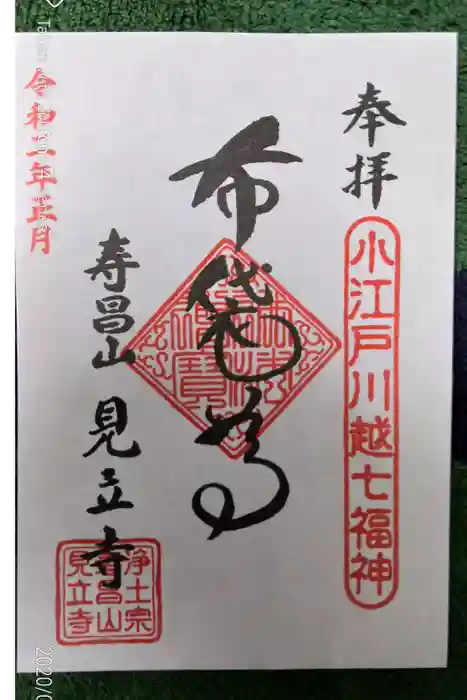 奉拝
小江戸川越七福神
布袋尊
佛法僧寳
寿昌山 見立寺
浄土宗
寿昌山
見立寺
令和二年正月